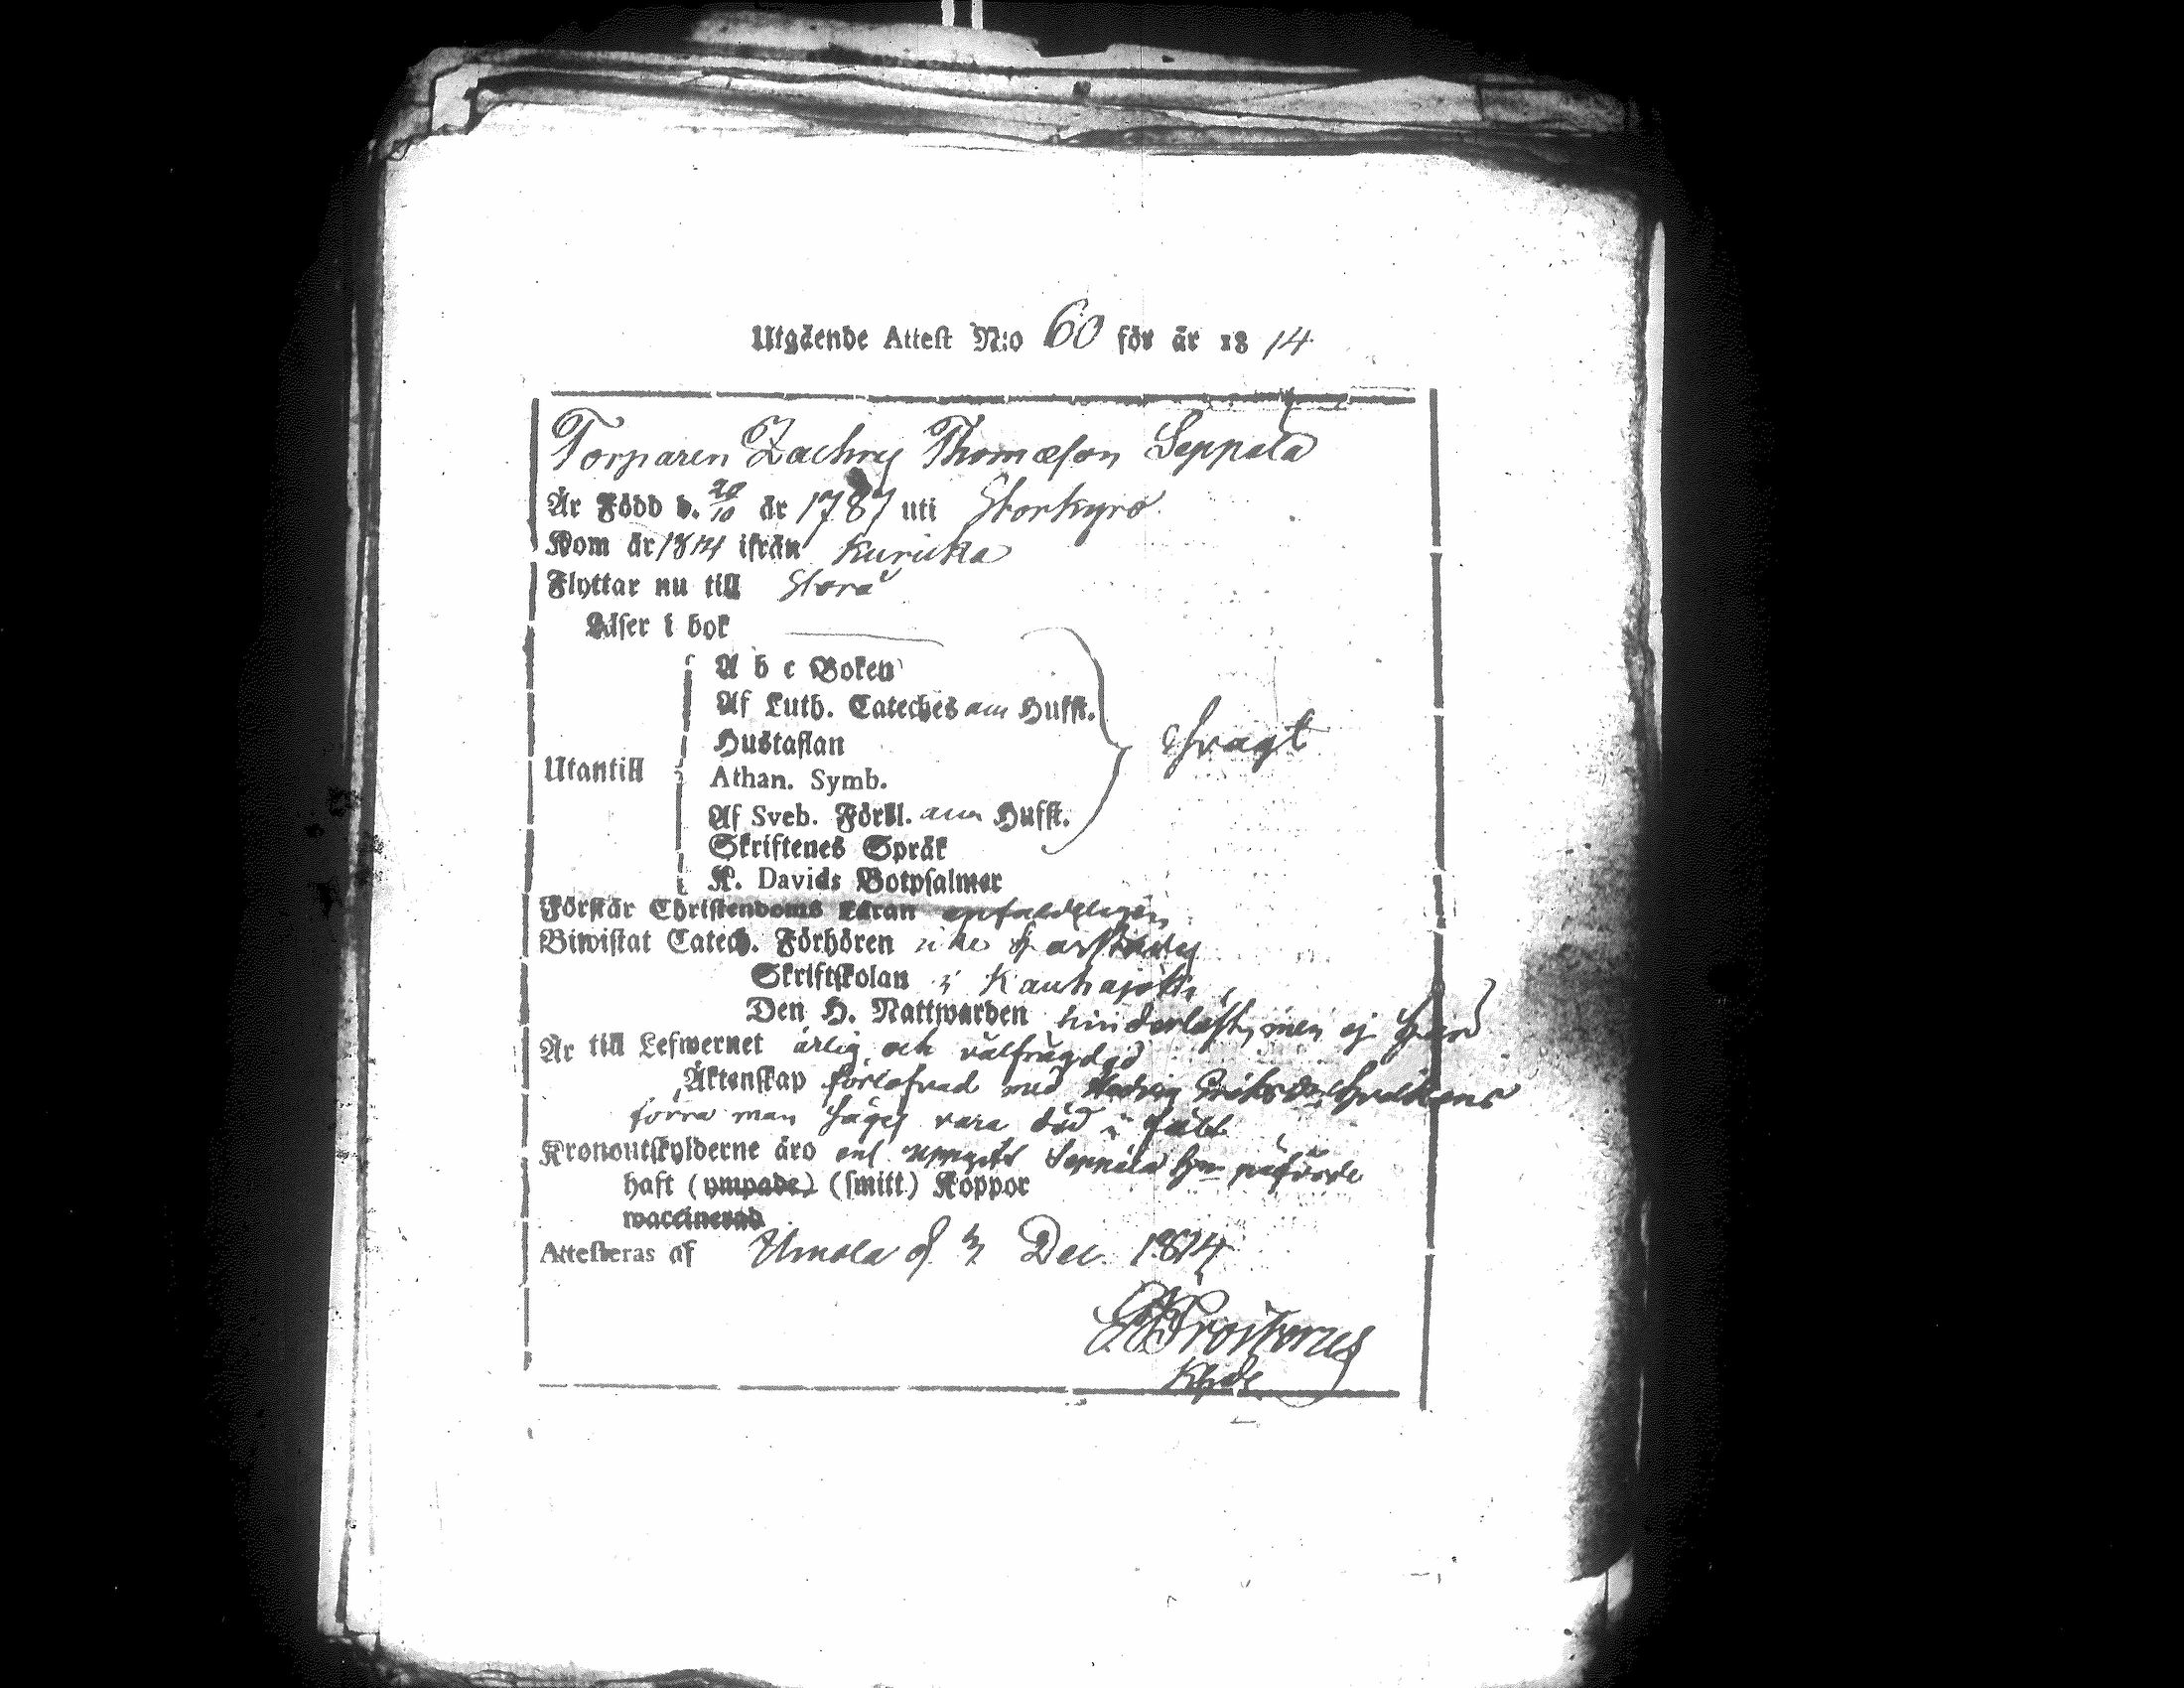 Utgående Attest N:o 60 för år 1814
Torparen Zachrs Thomæson Seppälä
Är Född d. 20/10 år 1787 uti Storkyro
Kom år 1814 ifrån Kurikka
Flyttar nu till Storå
Läser i bok
A b c Boken
Af Luth. Cateches Hufst.
Hustaflan
Utantill
Athan. Symb.
Af Sveb. Förkl. Hufst.
Skriftenes Språk
K. Davids Botpsalmer
svagt
Förstår Christendoms Läran enfaldeligen
Biwistat Catech. Förhören
Skriftskolan i Kauhajoki,
Den H. Nattwarden men ej här
Är till Lefwernet ärlig och välfrägdad
Äktenskap förlofvad med Hedvig Eriksdr hvilkens
förra man säges vara död i fält
Kronoutskylderne äro enl uppgift Seppälä påförde
haft (ympade) (smitt) Koppor
waccinerad
Attesteras af Ilmola d. Dec. 1814